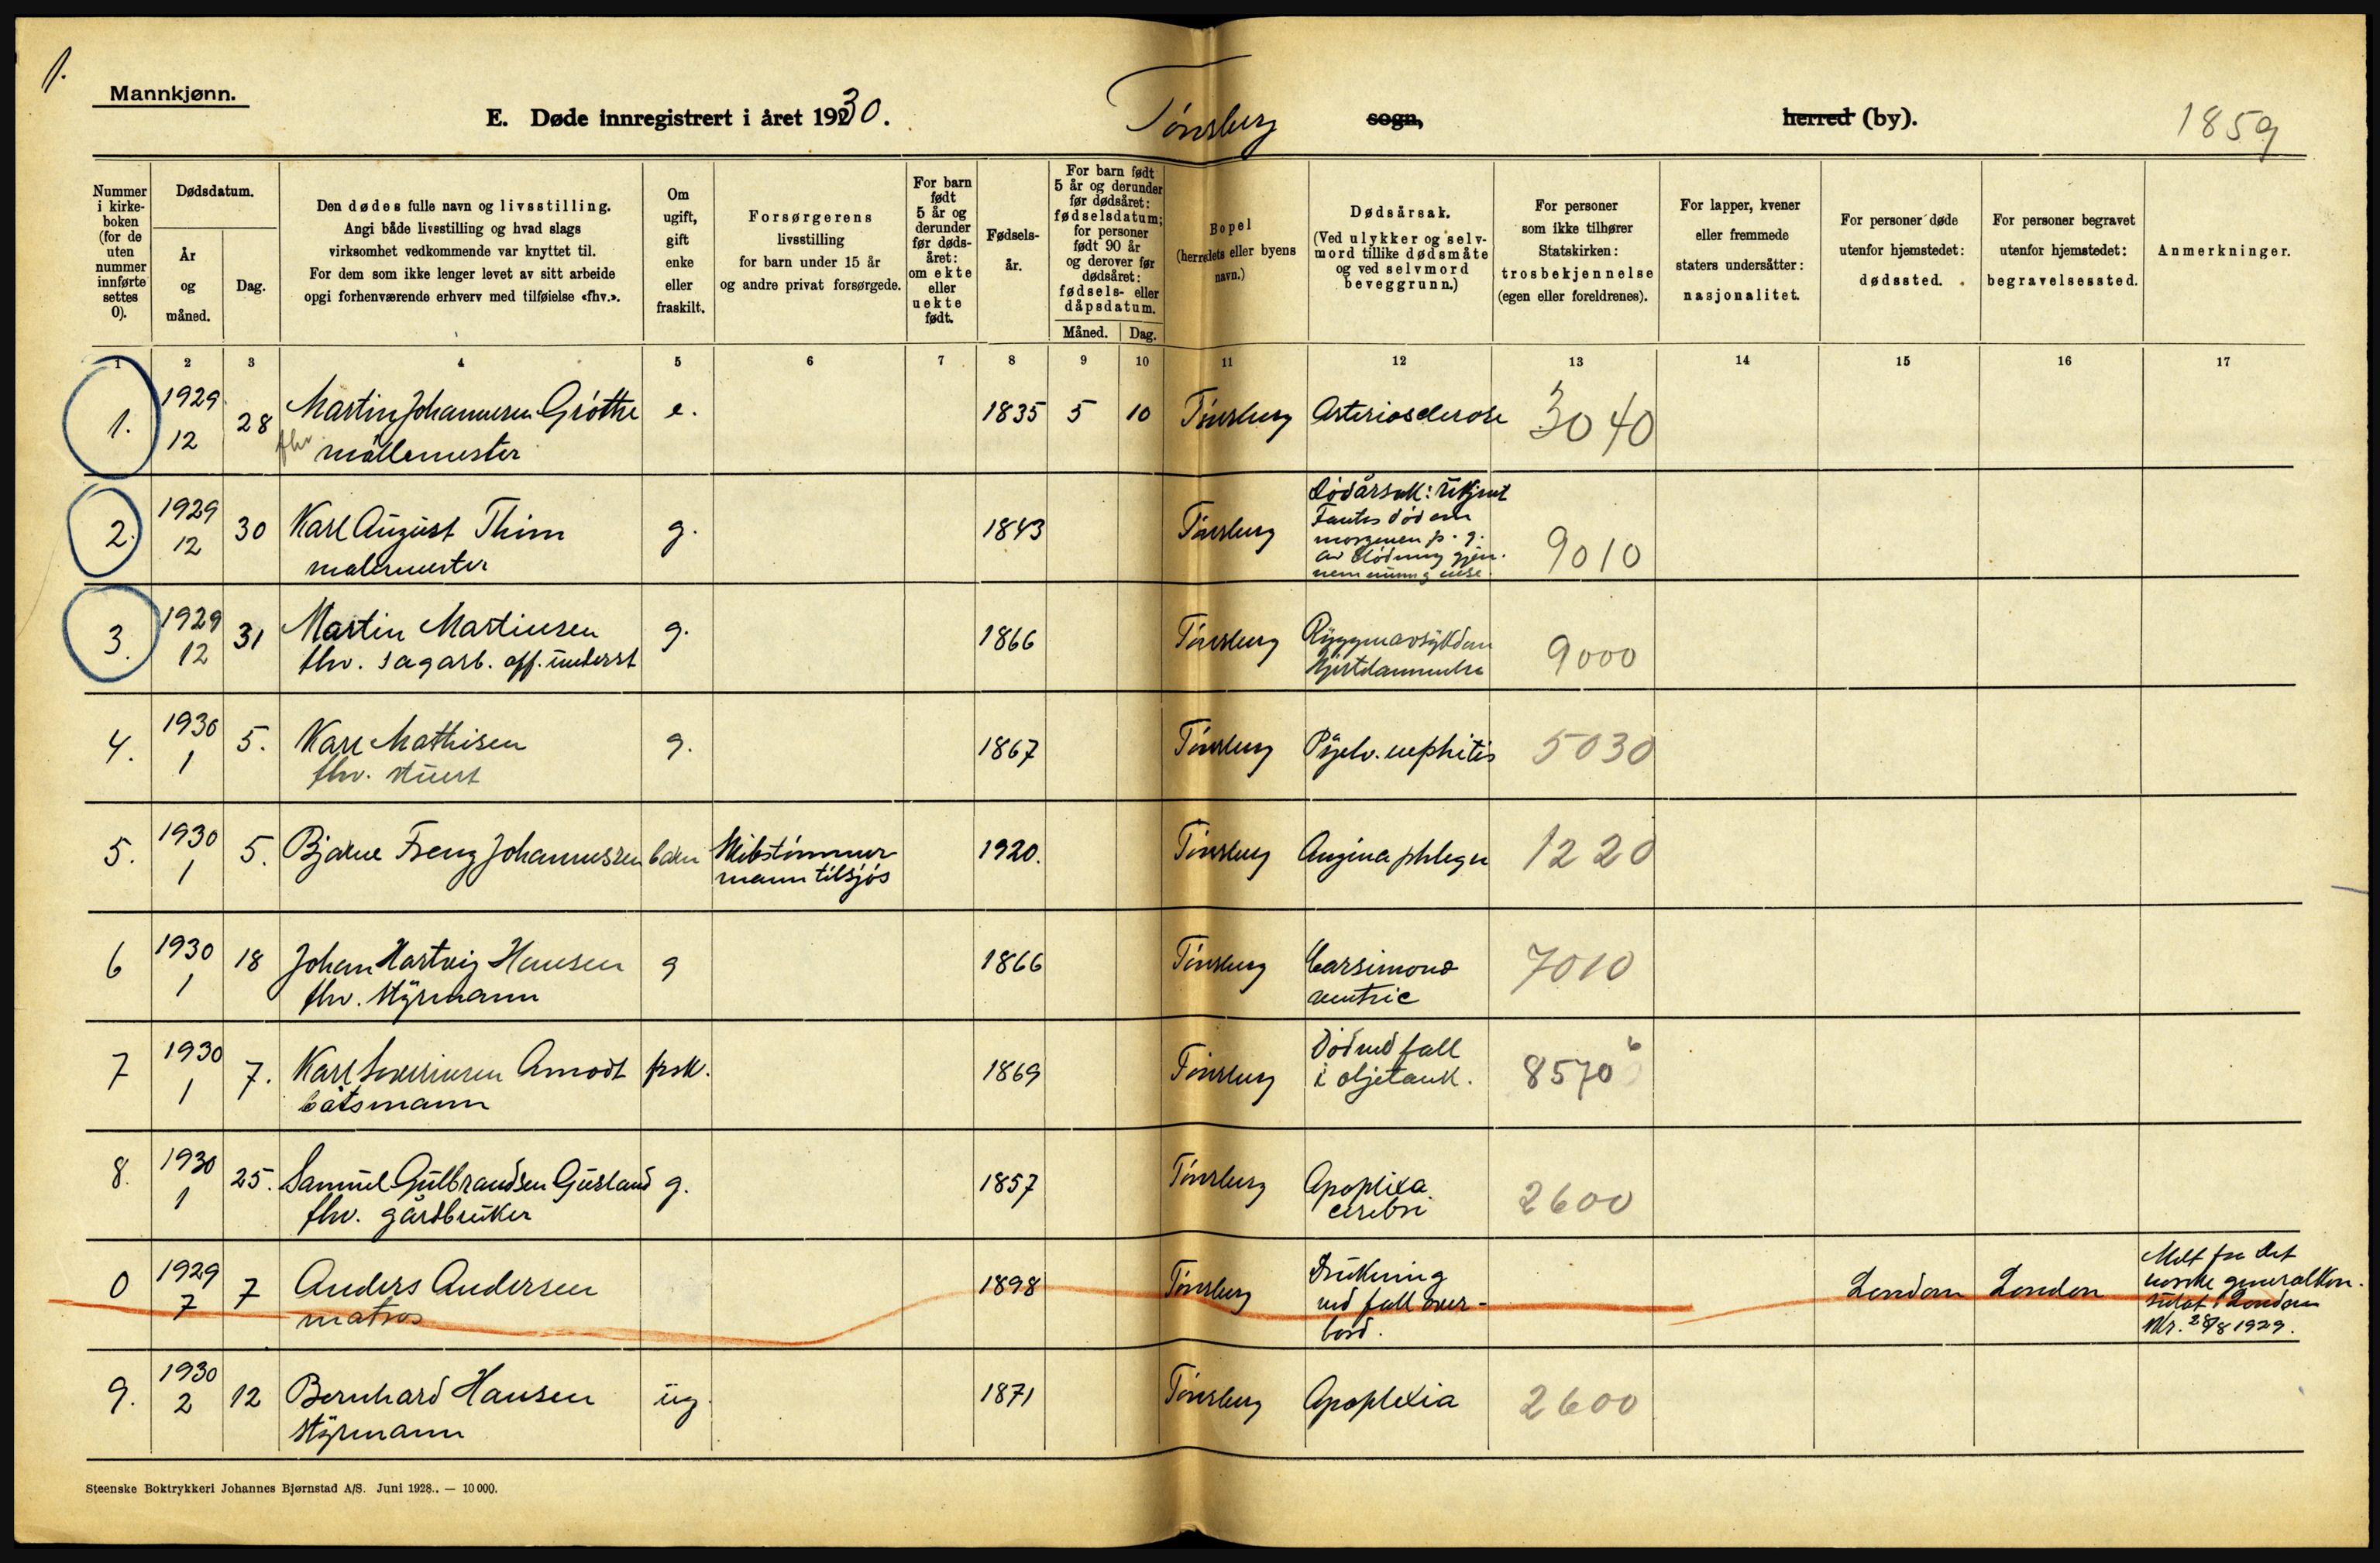 1.
Mannkjønn.
E. Døde innregistrert i året 1930. Tønsberg sogn, herred (by). 1859
Nummer i kirkeboken (for de uten nummer innførte settes 0).
Dødsdatum.
År og måned.
Dag.
Den dødes fulle navn og livsstilling.
Angi både livsstilling og hvad slags
virksomhet vedkommende var knyttet til.
For dem som ikke lenger levet av sitt arbeide
opgi forhenværende erhverv med tilføielse «fhv.».
Om ugift, gift enke eller fraskilt.
Forsørgerens
livsstilling
for barn under 15 år
og andre privat forsørgede.
For barn født 5 år og derunder før dødsåret: om ekte eller uekte født.
Fødselsår.
For barn født 5 år og derunder før dødsåret: fødselsdatum; for personer født 90 år og derover før dødsåret: fødsels- eller dåpsdatum.
Måned. Dag.
Bopel
(herredets eller byens
navn.)
Dødsårsak.
(Ved ulykker og selvmord tillike dødsmåte
og ved selvmord
beveggrunn.)
For personer
som ikke tilhører
Statskirken:
trosbekjennelse
(egen eller foreldrenes).
For lapper, kvener
eller fremmede
staters undersåtter:
nasjonalitet.
For personer døde
utenfor hjemstedet:
dødssted.
For personer begravet
utenfor hjemstedet:
begravelsessted.
Anmerkninger.
1 2 3 4 5 6 7 8 9 10 11 12 13 14 15 16 17
1. 1929 12 28 Martin Johannesen Grøthe e. 1835 5 10 Tønsberg Arteriosclerose 3040
fhv møllemester
2. 1929 12 30 Karl August Thim g. 1843 Tønsberg Dødårsak: Ukjent 9010
malermester Fantes død om
morgenen p. g.
av blødning gjen-
nem munn g nese.
3. 1929 12 31 Martin Martinsen g. 1866 Tønsberg Ryggmarvsykdom 9000
fhv. sagarb. off. underst
4. 1930 1 5. Karl Mathisen g. 1867 Tønsberg Pyelo. nephitis 5030
fhv. stuert
5. 1930 1 5. Bjarne Freng Johannessen barn Skibstømmer 1920. Tønsberg Angina phlegn 1220
mann tilsjøs
6 1930 1 18 Johan Hartvig Hansen g 1866 Tønsberg Carsinoma 7010
fhv. styrmann ventric
7 1930 1 7. Karl Severinsen Amodt frsk. 1869 Tønsberg Død ved fall 8570 6
båtsmann i oljetank.
8. 1930 1 25. Samuel Gulbrandsen Gusland g. 1857 Tønsberg Apoplexa 2600
fhv. gårdbruker cerebri
0 1929 7 7 Anders Andersen 1898 Tønsberg Drukning London London Melt fra det
matros ved fall over- norske generalkon-
bord. sulat i London
Skr. 28/8 1929.
9. 1930 2 12 Bernhard Hansen ug. 1871 Tønsberg Apoplexia 2600
styrmann
Steenske Boktrykkeri Johannes Bjørnstad A/S. Juni 1928.. — 10 000.